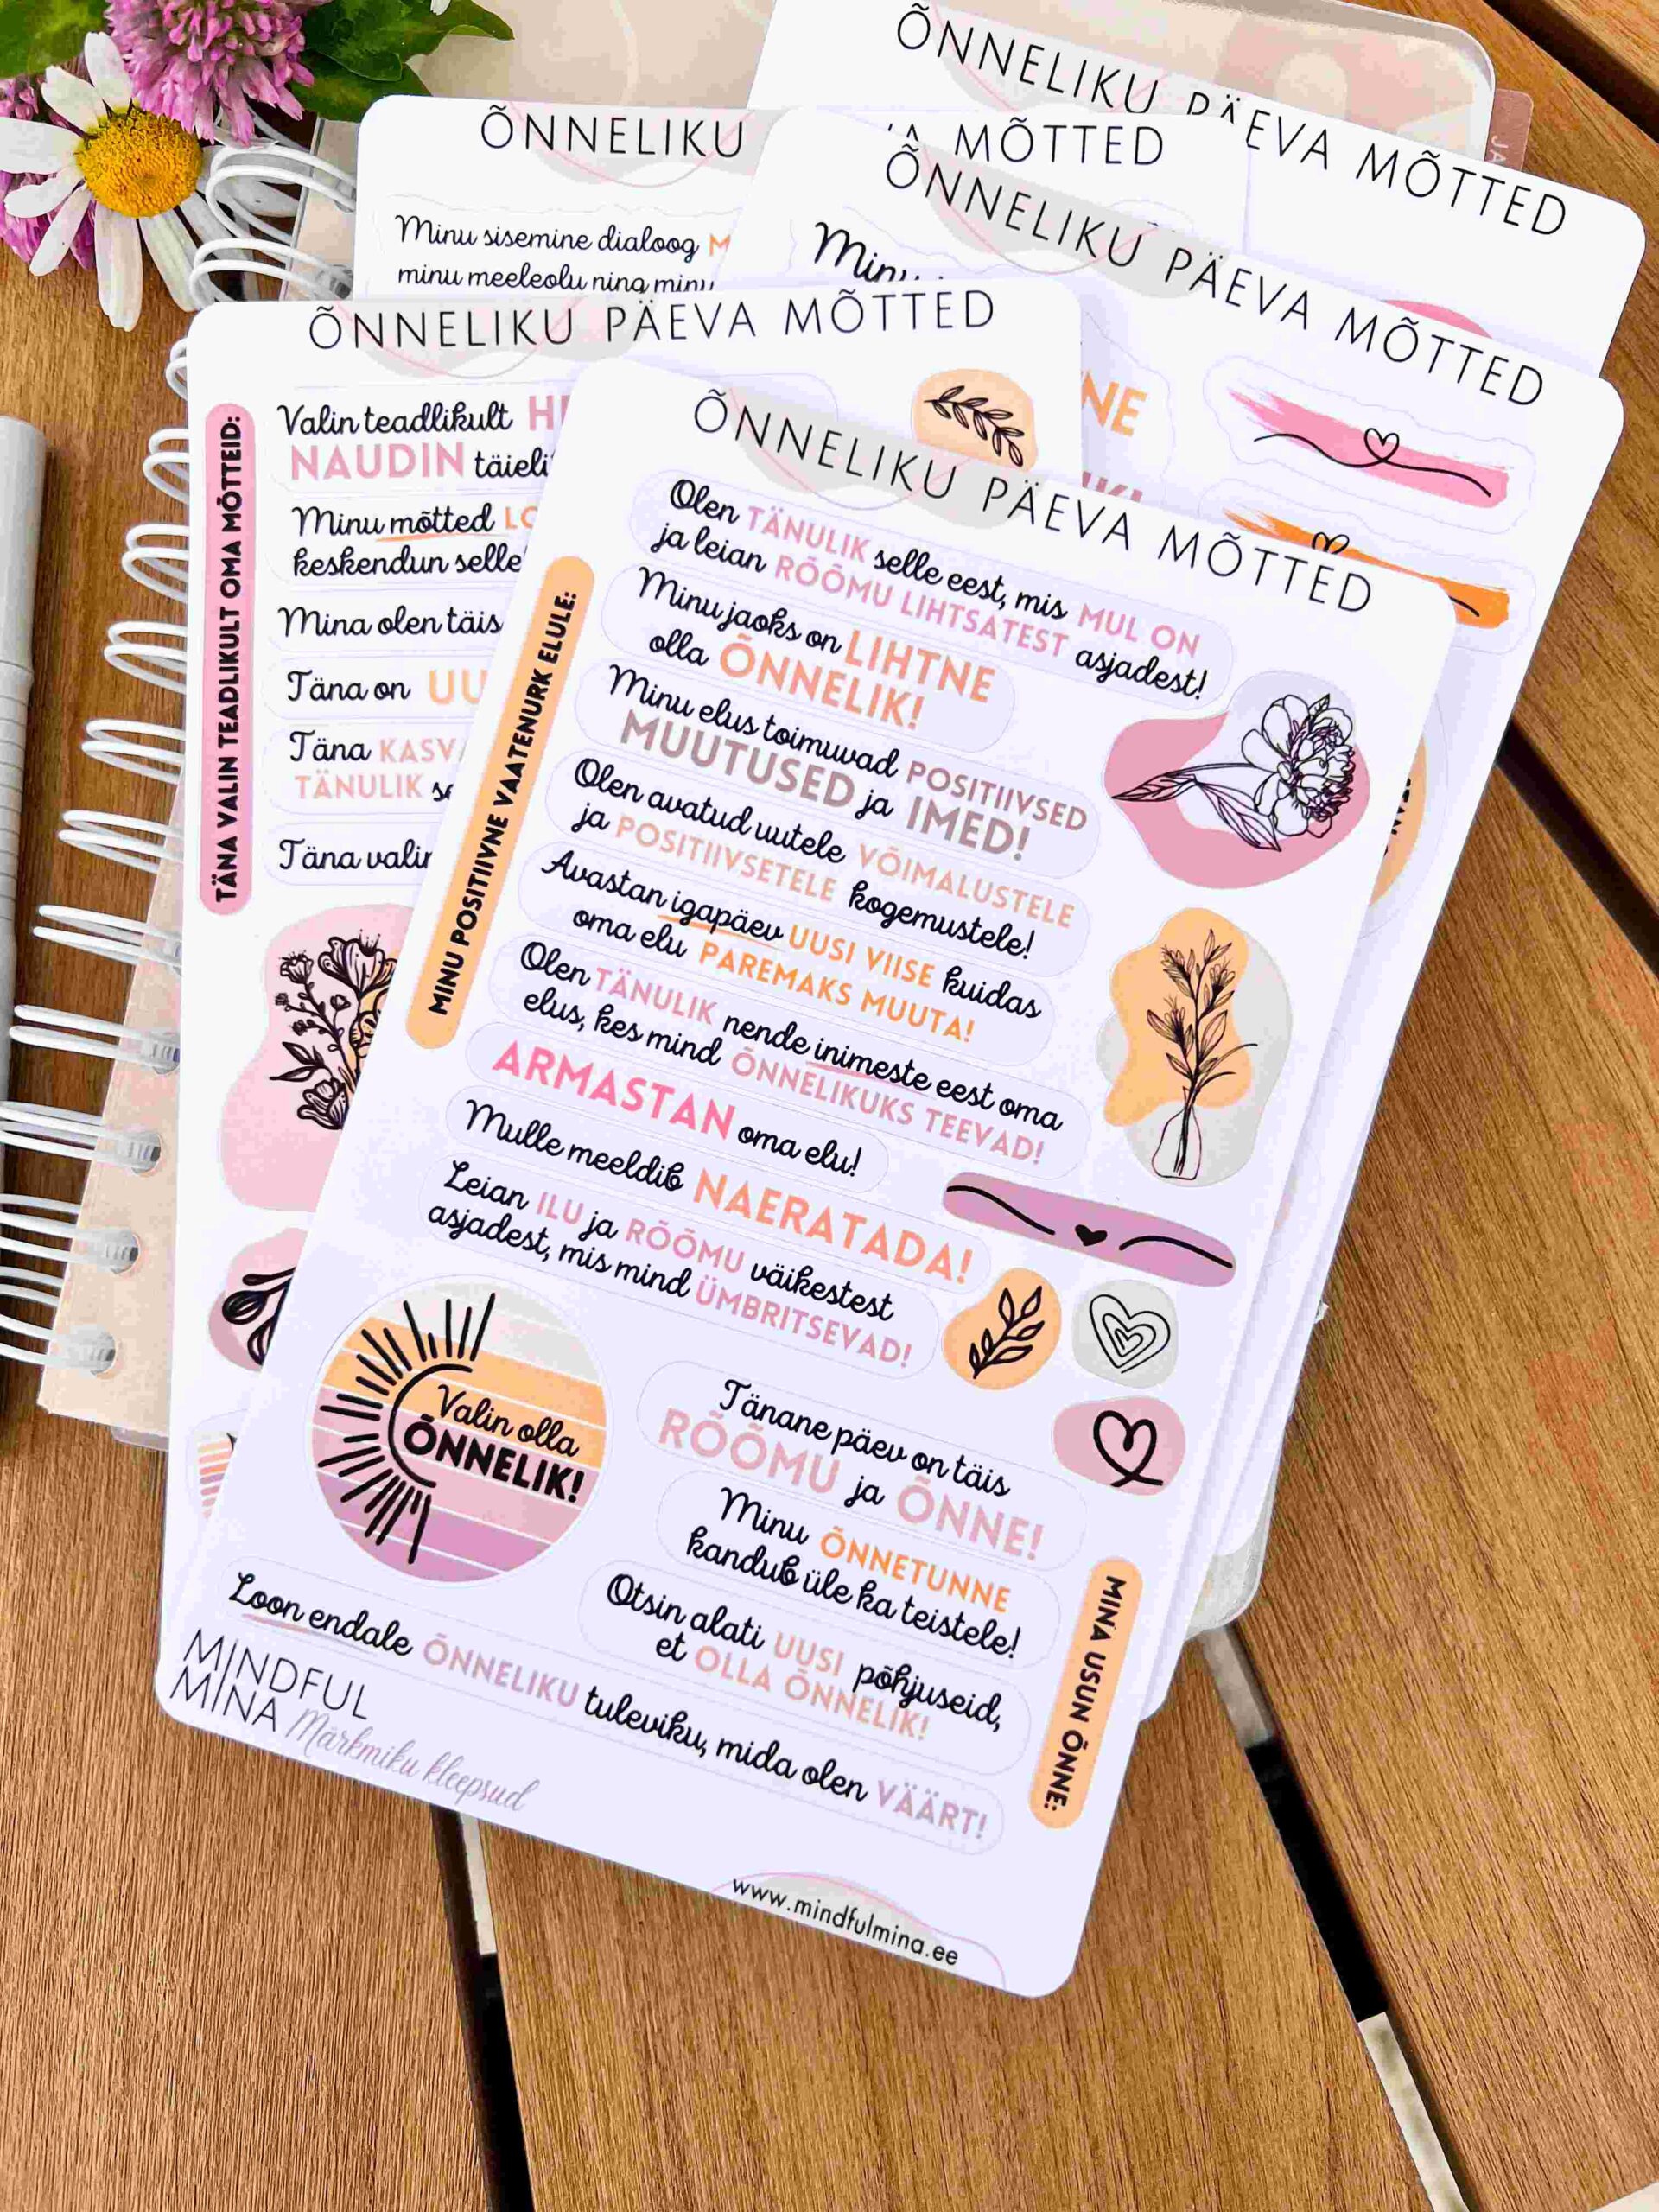 ÕNNELIKU PÄEVA MÕTTED
ÕNNELIKU
MÕTTED
ÕNNELIKU PÄEVA MÕTTED
Minu sisemine dialoog
minu meeleolu ning minu
NE
ÕNNELIKU PÄEVA MÕTTED
TÄNA VALIN TEADLIKULT OMA MÕTTEID:
Valin teadlikult
NAUDIN
Minu mõtted
keskendun
Mina olen täis
Täna on
Täna
TÄNULIK
Täna
ÕNNELIKU PÄEVA MÕTTED
MINU POSITIIVNE VAATENURK ELULE:
Olen TÄNULIK selle eest, mis MUL ON
ja leian RÕÕMU LIHTSATEST asjadest!
Minu jaoks on LIHTNE
olla ÕNNELIK!
Minu elus toimuvad POSITIIVSED
MUUTUSED ja IMED!
Olen avatud uutele VÕIMALUSTELE
ja POSITIIVSETELE kogemustele!
Avastan igapäev UUSI VIISE kuidas
oma elu PAREMAKS MUUTA!
Olen TÄNULIK nende inimeste eest oma
elus, kes mind ÕNNELIKUKS TEEVAD!
ARMASTAN oma elu!
Mulle meeldib NAERATADA!
Leian ILU ja RÕÕMU väikestest
asjadest, mis mind ÜMBRITSEVAD!
Valin olla
ÕNNELIK!
Tänane päev on täis
RÕÕMU ja ÕNNE!
Minu ÕNNETUNNE
kandub üle ka teistele!
Otsin alati UUSI põhjuseid,
et OLLA ÕNNELIK!
MINA USUN ÕNNE:
Loon endale ÕNNELIKU tuleviku, mida olen VÄÄRT!
MINDFUL
MINA Märkmiku kleepsud
www.mindfulmina.ee